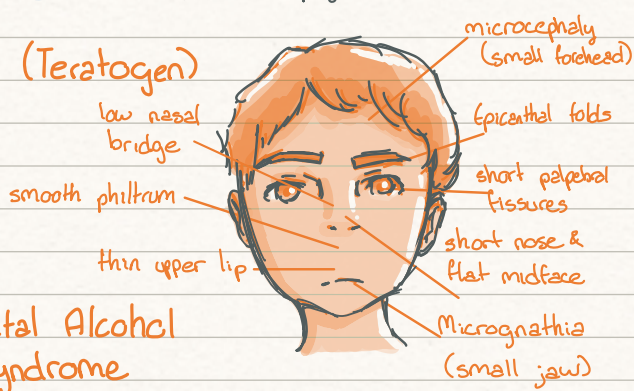 (Teratogen)
low nasal
bridge
smooth philtrum
thin upper lip
tal Alcohol
yndrome
microcephaly
(small forehead)
Epicanthal folds
short palpebral
fissures
short nose &
flat midface
Micrognathia
(small jaw)